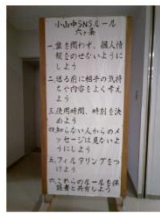 小山中SNSルール
六ヶ条
一.誰を問わず、個人情
報をのせないように
しよう
二.送る前に相手の気持
ちや内容をよく考え
よう
三.使用時間、時刻を決
めよう
四.知らない人からのメ
ッセージは見ないよ
うにしよう
五.フィルタリングをつ
けよう
六.これらのルールを保
護者と共有しよう